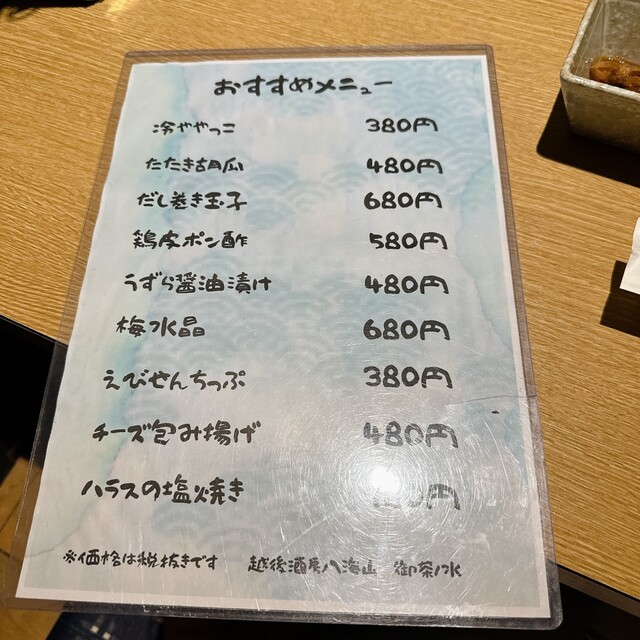 おすすめメニュー
冷ややっこ 380円
たたき胡瓜 480円
だし巻き玉子 680円
鶏皮ポン酢 580円
うずら醤油漬け 480円
梅水晶 680円
えびせんちっぷ 380円
チーズ包み揚げ 480円
ハラスの塩焼き 円
※価格は税抜きです 越後酒房八海山 御茶ノ水